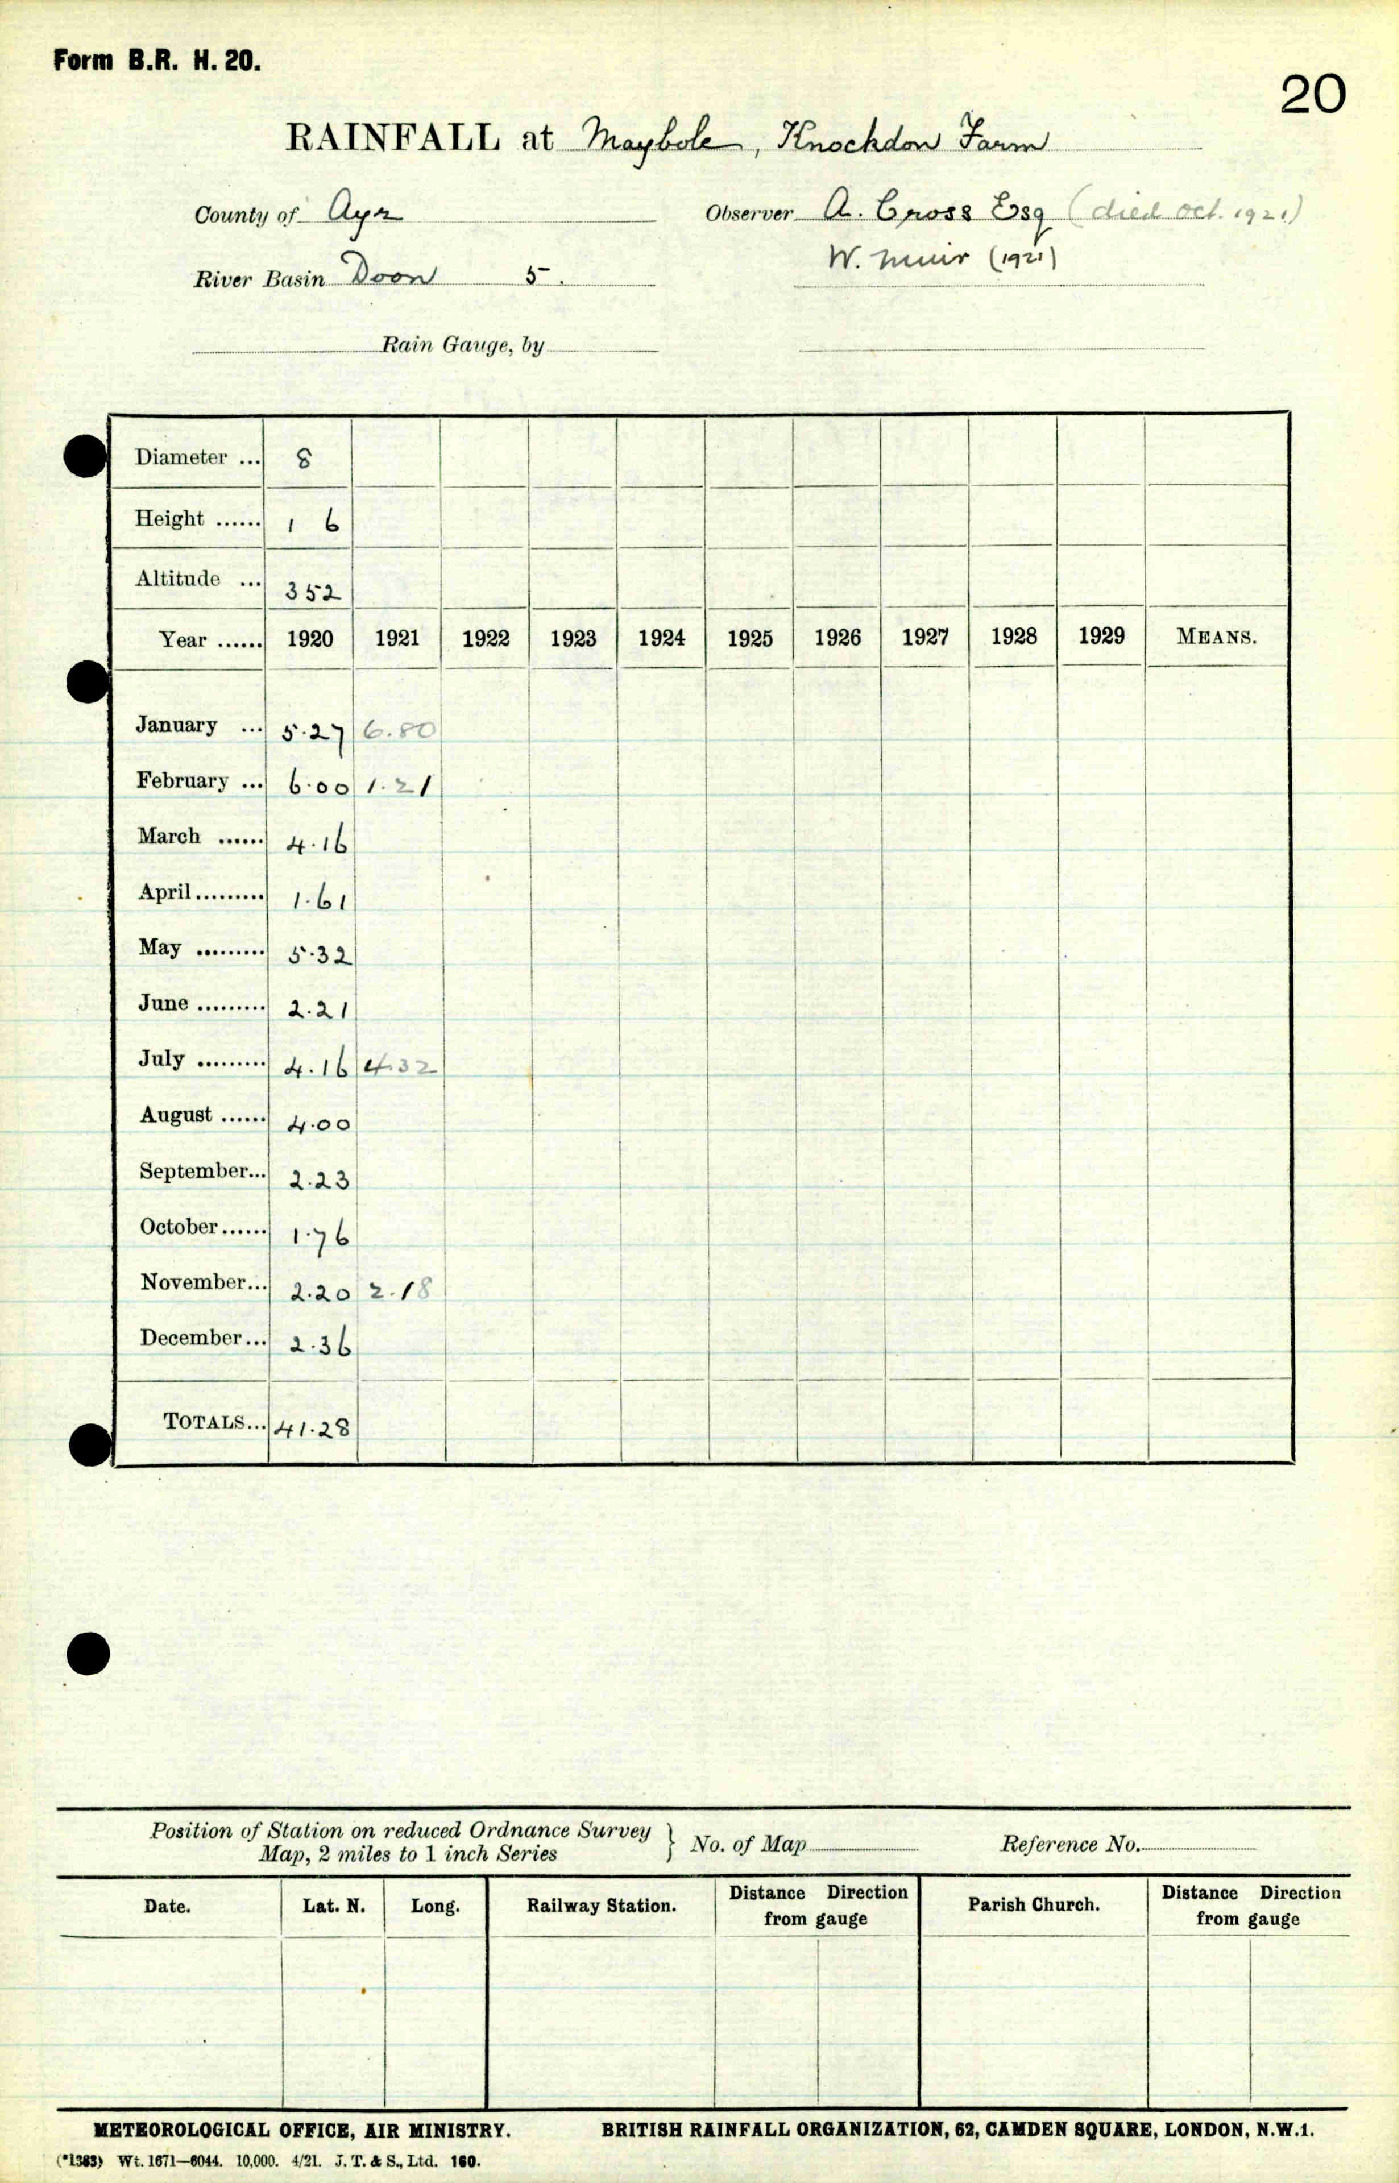 Form B.R. H. 20.
20
RAINFALL at Maybole, Knockdon Farm
County of Ayr
Observer A. Cross Esq (died Oct. 1921)
W. Muir (1921)
River Basin Doon 5.
Rain Gauge, by
Diameter ... 8
Height ...... 1 6
Altitude ... 352
Year ...... 1920 1921 1922 1923 1924 1925 1926 1927 1928 1929 MEANS.
January ... 5.27 6.80
February ... 6.00 1.21
March ...... 4.16
April......... 1.61
May ......... 5.32
June ......... 2.21
July ......... 4.16 4.32
August ...... 4.00
September... 2.23
October...... 1.76
November... 2.20 2.18
December... 2.36
TOTALS... 41.28
Position of Station on reduced Ordnance Survey
Map, 2 miles to 1 inch Series } No. of Map Reference No.
Date. Lat. N. Long. Railway Station. Distance Direction
from gauge Parish Church. Distance Direction
from gauge
METEOROLOGICAL OFFICE, AIR MINISTRY. BRITISH RAINFALL ORGANIZATION, 62, CAMDEN SQUARE, LONDON, N.W.1.
(*1383) Wt. 1671—6044. 10,000. 4/21. J. T. & S., Ltd. 160.